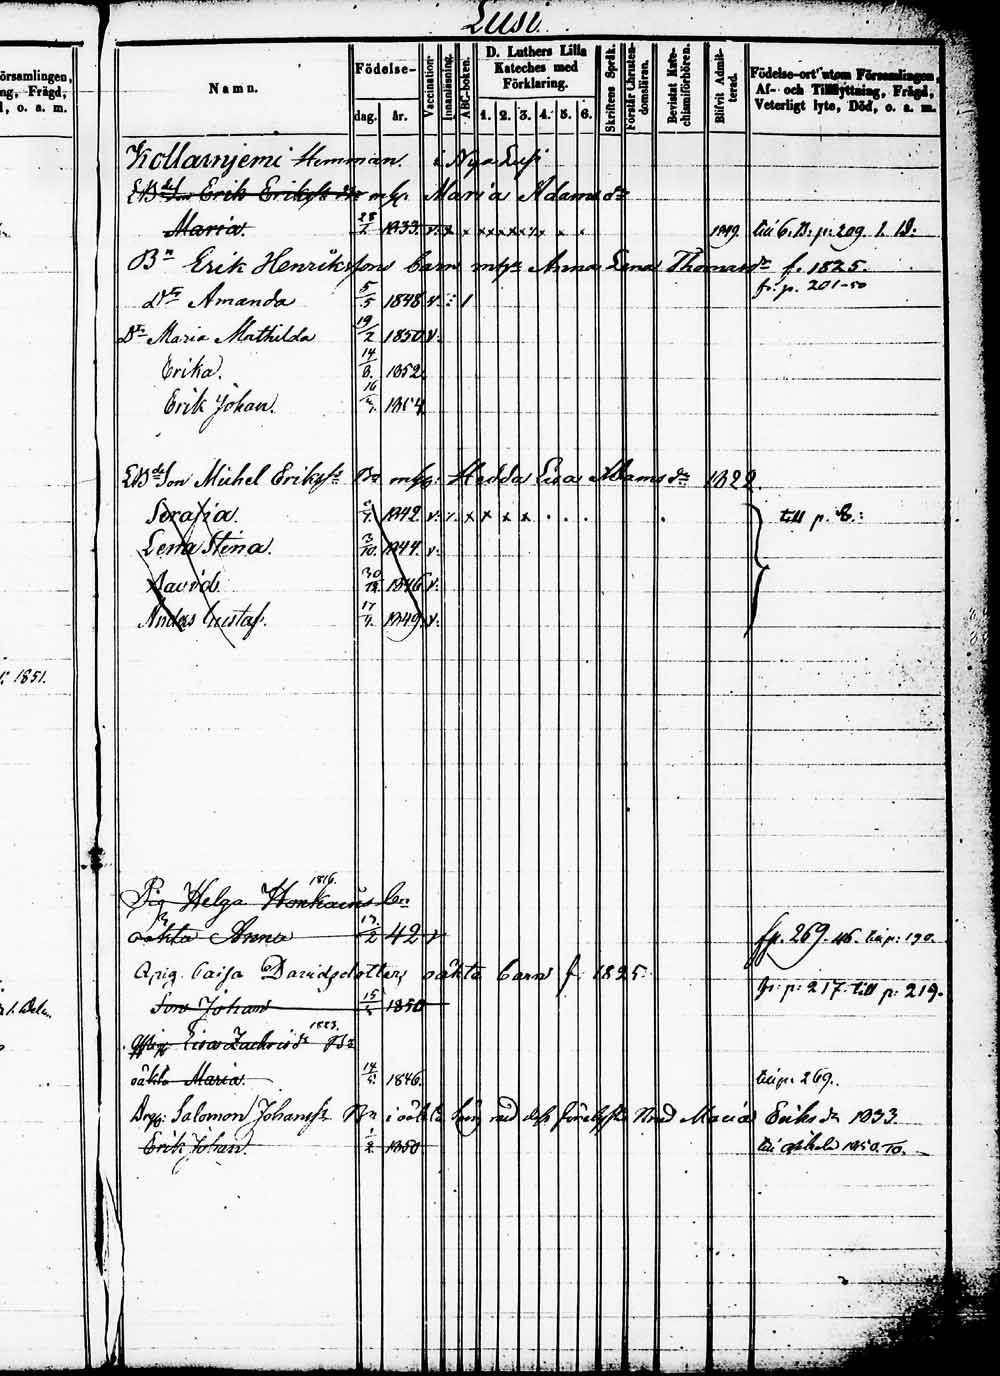 Lusi.
örsamlingen,
ng, Frägd,
l, o. a. m.
Namn.
Födelse-
dag. år.
Vaccination.
Innanläsning.
ABC-boken.
D. Luthers Lilla
Kateches med
Förklaring.
1. 2. 3. 4. 5. 6.
Skriftens Språk.
Förstår Christen-
domsläran.
Bevistat Kate-
chismiförhören.
Blifvit Admit-
terad.
Födelse-ort utom Församlingen,
Af- och Tillflyttning, Frägd,
Veterligt lyte, Död, o. a. m.
Kollarnjemi Hemman. i Nya Lusi
LBde Son Erik Eriks mhu Maria Adams dr
Maria. 28/2 1833. v. x x x x x x x x 1849. till p. 209.
Bn Erik Henrikssons barn m hu Anna Lena Thomas dr f. 1825.
fr. p. 201-50
Dtr Amanda 5/5 1848 v.
Dtr Maria Mathilda 19/2 1850 v.
Erika. 14/3. 1852.
Erik Johan. 16 1854
LBde Son Michel Eriks Bn Hedda Lisa Adams dr 1822.
Serafia. 1842 v. x x x x till p. 8:
Lena Stina. 3/10. 1844. v.
David. 30/12. 1846 v.
Andas Gustaf. 17 1849. v.
1851.
Pig. Helga Honkains 1816. bn
oäkta Anna 13/2 42 v fp. 269. 46. till p: 190.
Qpig. Caisa Davidsdotters oäkta barn f. 1825.
Son Johan 15 1850 fr: p: 217. till p: 219.
Lisa Zachris dr 1823. Bn
oäkta Maria. 14/5. 1846. till p. 269.
Dreg: Salomon Johans Bn i oäkta med Maria Eriks dr 1833.
Erik Johan. 1/2 1850